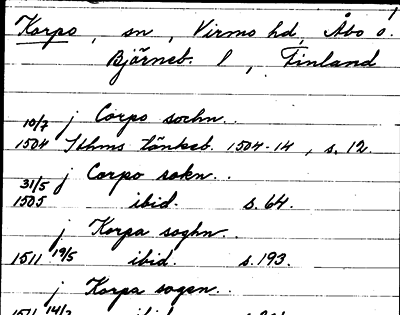 Korpo, sn, Virmo hd, Åbo o.
Björneb. l, Finland
10/7 j Corpo sochn..
1504 Sthms tänkeb. 1504-14, s. 12.
31/5 j Corpo sokn..
1505 ibid. s. 64.
j Korpa soghn..
1511 19/5 ibid. s. 193.
j Korpa sogen..
1511 14/3 ibid.